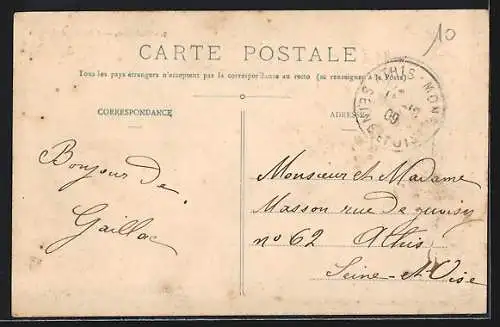 10
CARTE POSTALE
Tous les pays étrangers n'acceptent pas la correspondance au recto (se renseigner à la Poste)
CORRESPONDANCE
ADRESSE
THIS-MONS
09
SEINE-ET-OISE
Bonjour de
Gaillac
Monsieur et Madame
Masson rue de
n° 62 Athis
Seine-et-Oise